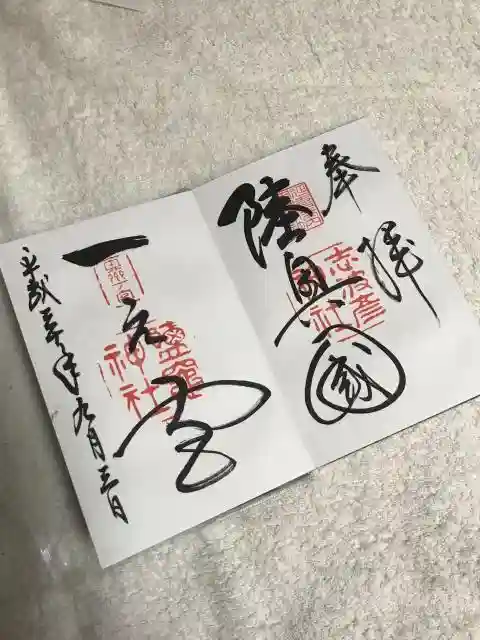 奉拝
陸奥國
志波彦
神社
一之宮
鹽竈
神社
平成三十年九月三日